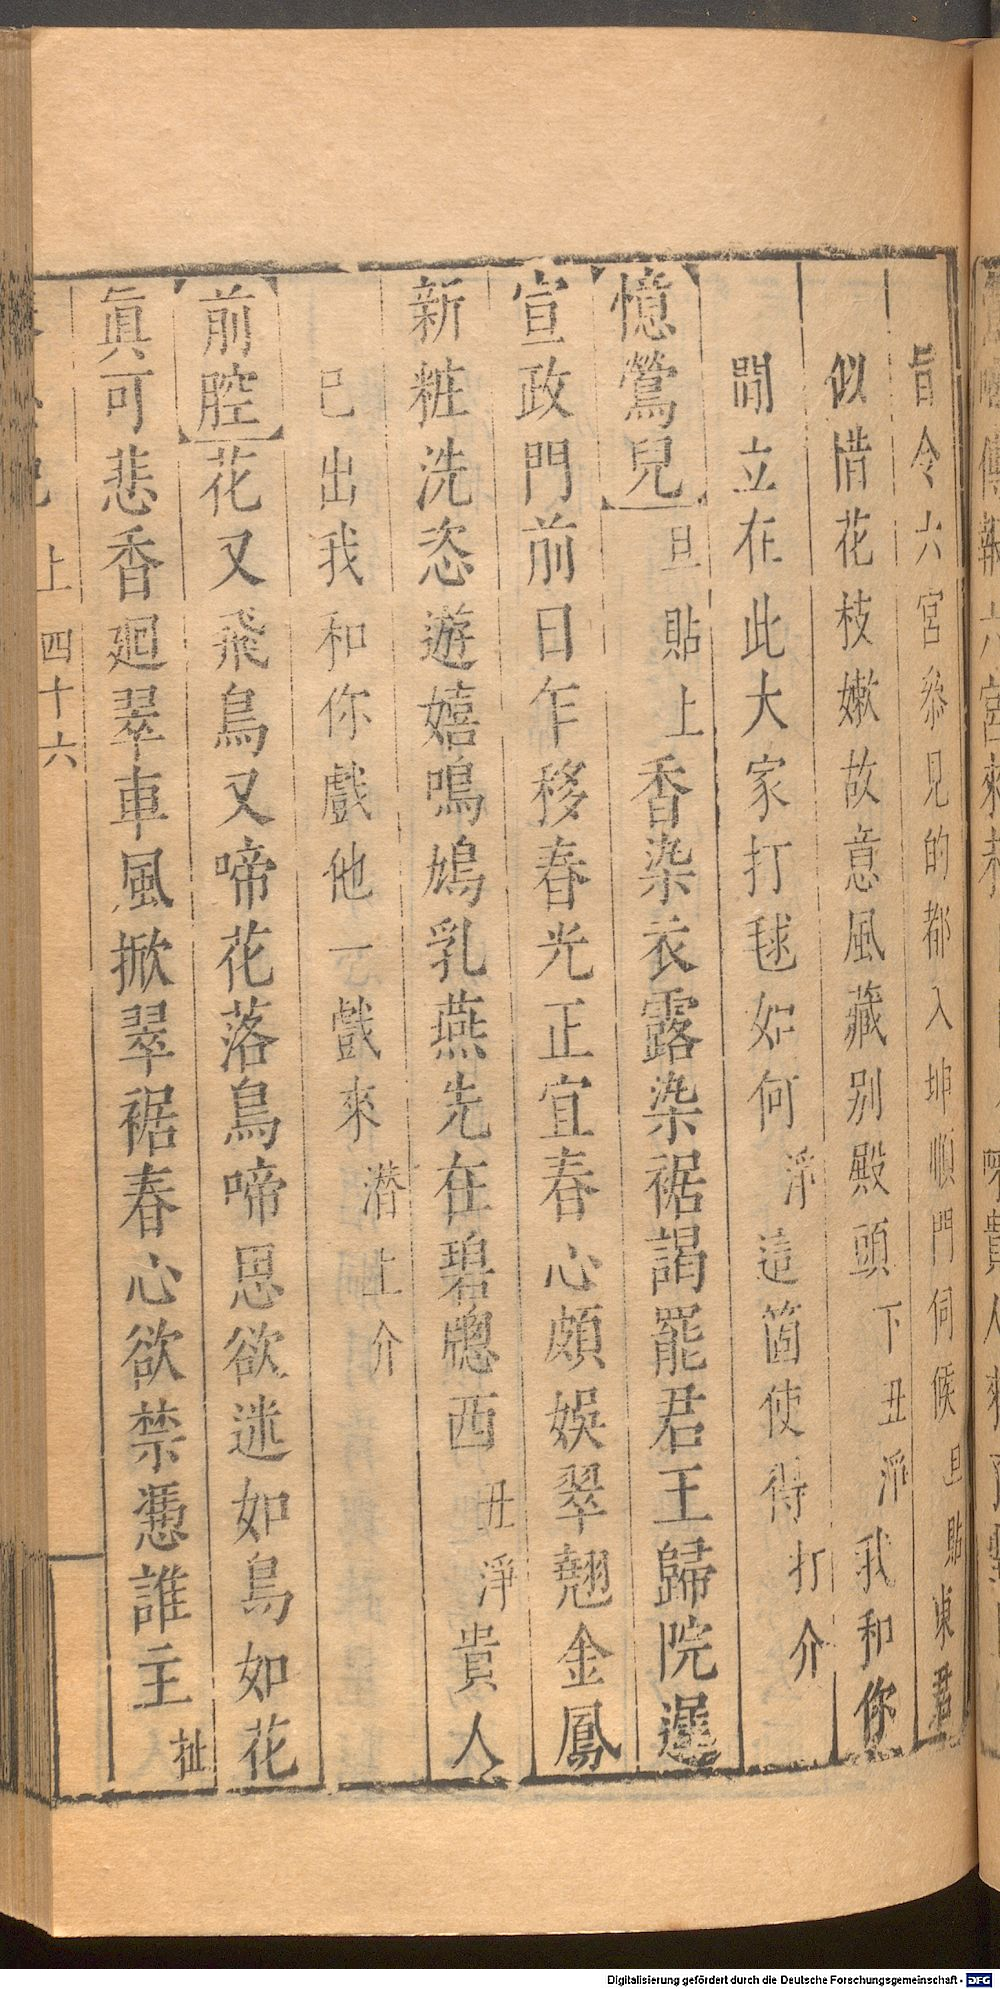 旨令六宮叅見的都入坤順門伺候旦貼東君
似惜花枝嫩故意風藏别殿頭下丑派我和你
閒立在此大家打毬如何淨這箇使得打介
憶鶯兒旦貼上香染衣露染裾謁罷君王歸院遲
宣政門前日乍移春光正宜春心頗娛翠翹金鳳
新粧洗恣遊嬉鳴鳩乳燕先在碧牕西丑淨貴人
已出我和你戲他一戲來潜上介
前腔花又飛鳥又啼花落鳥啼恩欲迷如鳥如花
眞可悲香廻翠車風掀翠裾春心欲禁憑誰主扯
上 四十六
Digitalisierung gefördert durch die Deutsche Forschungsgemeinschaft - DFG